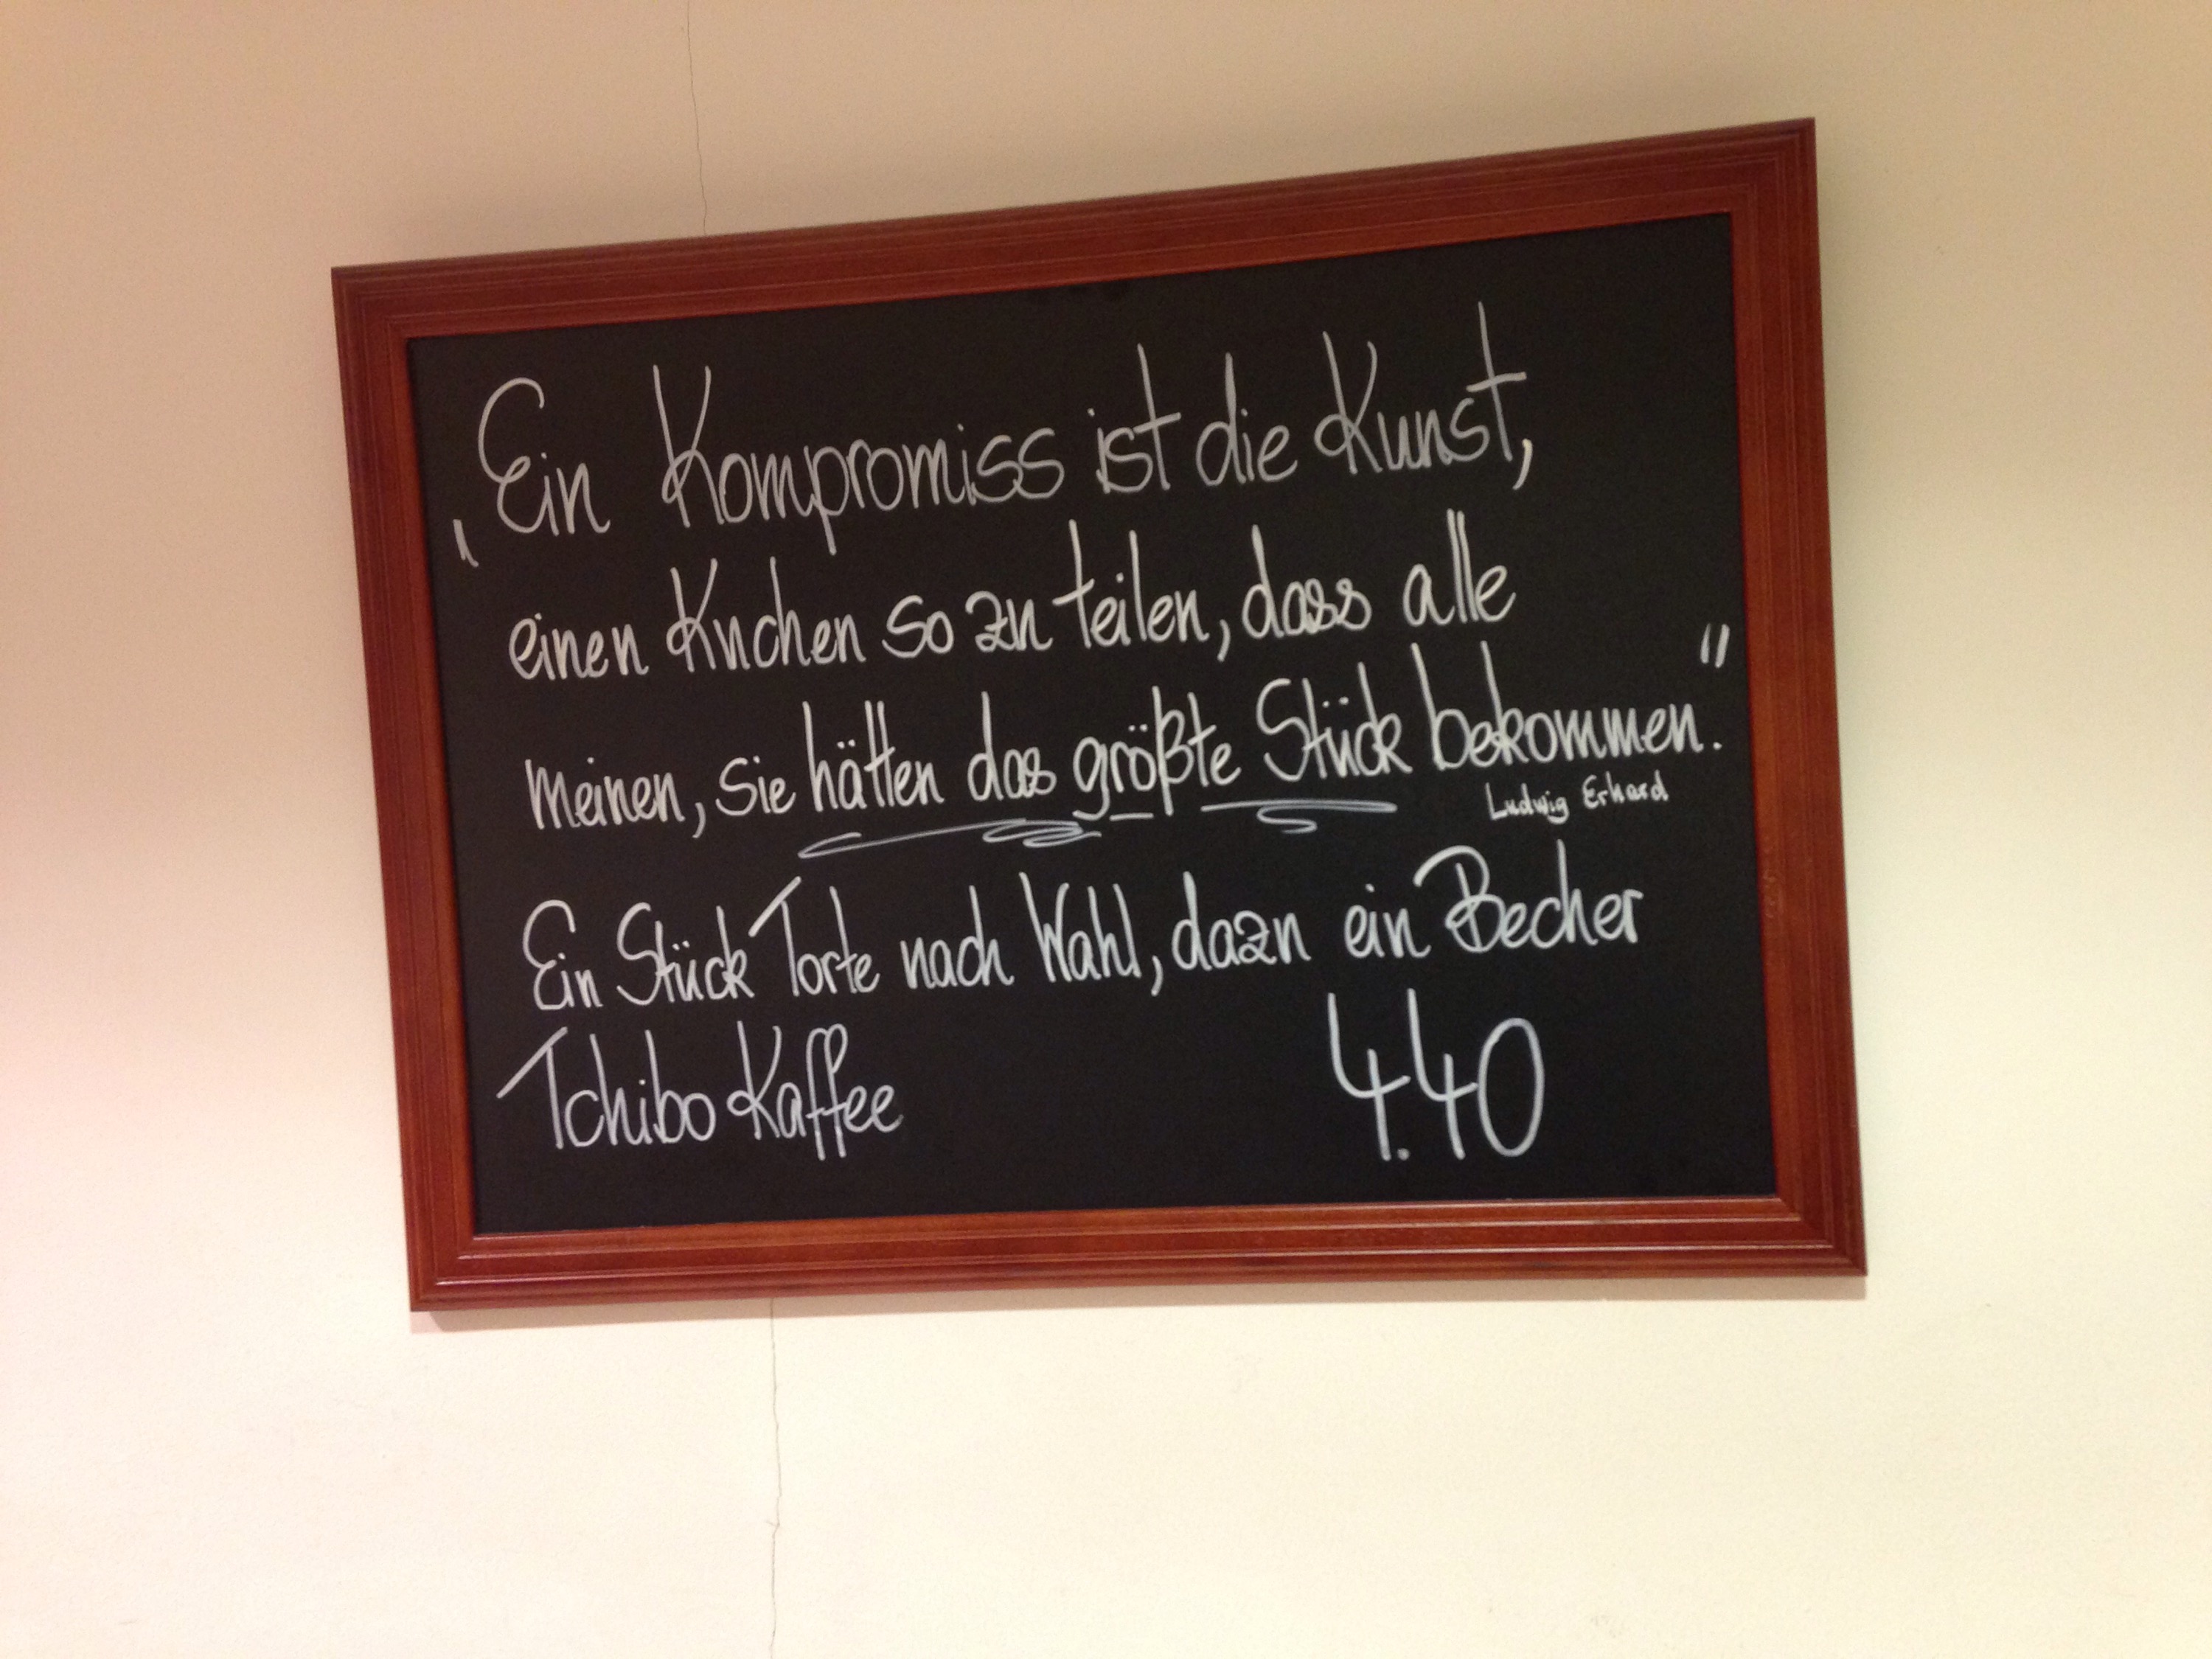 „Ein Kompromiss ist die Kunst,
einen Kuchen so zu teilen, dass alle
meinen, sie hätten das größte Stück bekommen."
Ludwig Erhard
Ein Stück Torte nach Wahl, dazu ein Becher
Tchibo Kaffee 4.40